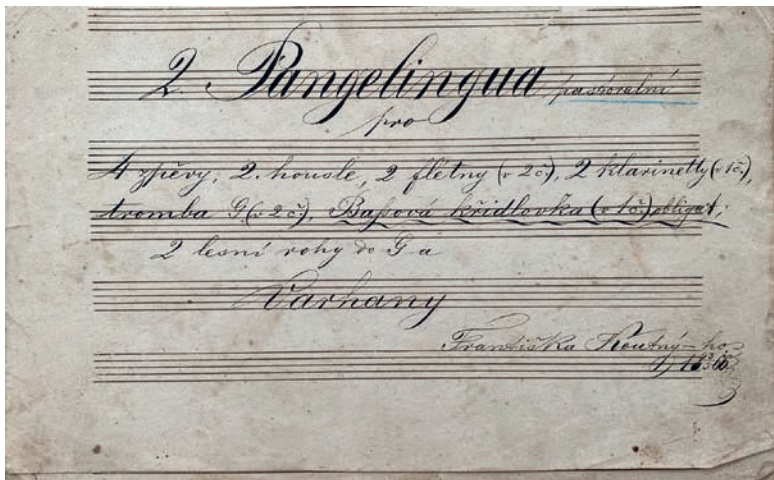 2. Pangelingua pastoralní
pro
4 zpěvy, 2. housle, 2 flétny (v 2 č.), 2 klarinetty (v 1 č.),
tromba G (v 2 č.), Baſsová křídlovka (v 1 č.) obligát;
2 lesní rohy do G a
Varhany
Františka Koutný-ho